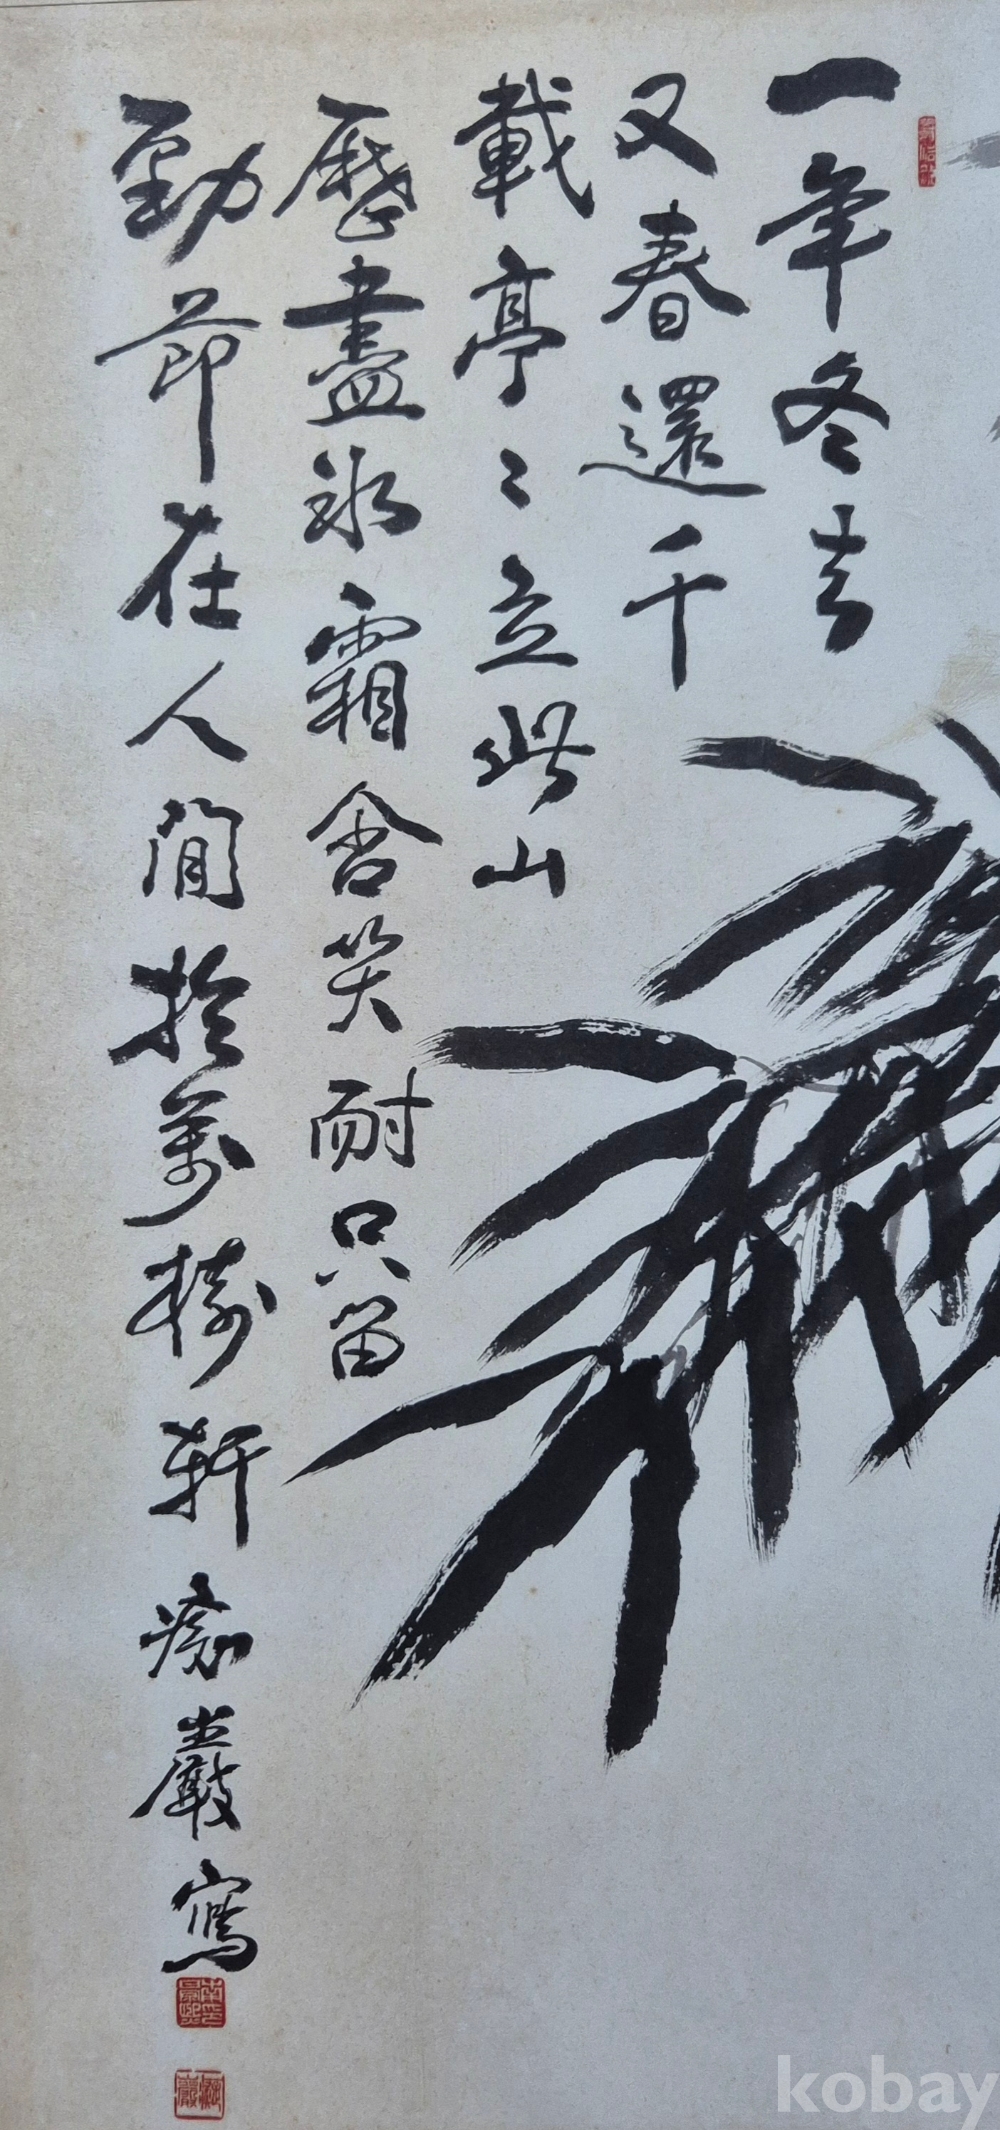 一年冬去
又春還千
載亭〻立此山
歷盡氷霜含笑耐只留
勁節在人間於萬樹軒
巖寫
kobay